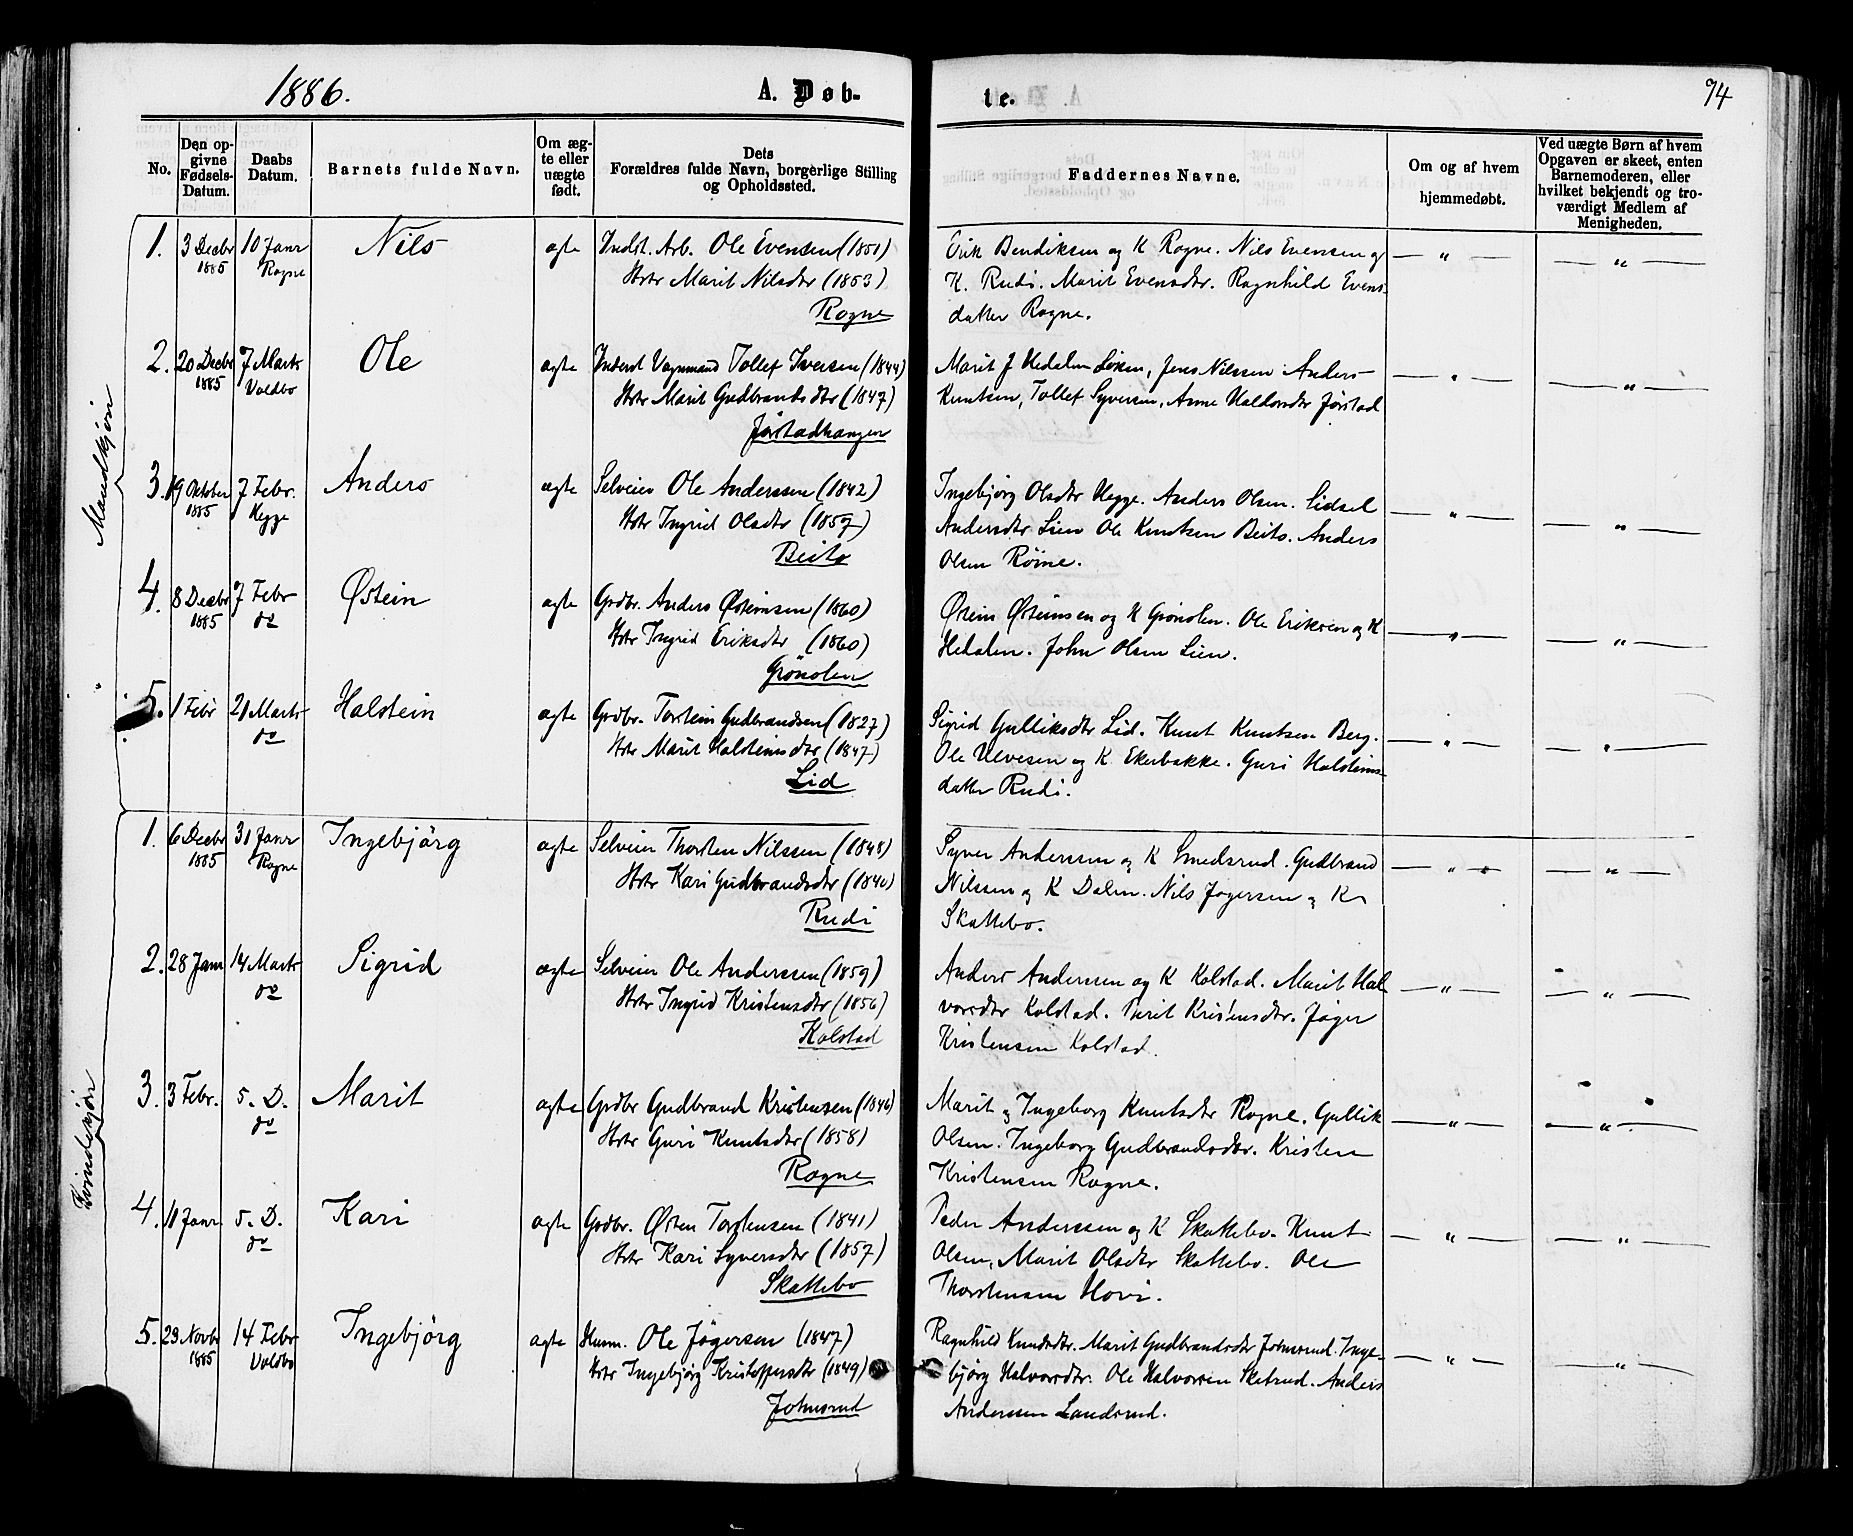 1886.
A. Døb-
te.
74
No.
Den op-
givne
Fødsels-
Datum.
Daabs
Datum.
Barnets fulde Navn.
Om æg-
te eller
uægte
født.
Dets
Forældres fulde Navn, borgerlige Stilling
og Opholdssted.
Faddernes Navne.
Om og af hvem
hjemmedøbt.
Ved uægte Børn af hvem
Opgaven er skeet, enten
Barnemoderen, eller
hvilket bekjendt og tro-
værdigt Medlem af
Menigheden.
Mandkjøn
1. 3 Decbr 10 Janr Nils ægte Indst. Arb. Ole Evensen (1851) Erik Bendiksen og K Rogne. Nils Evensen og — " —  — " —
1885 Rogne Hstr Marit Nilsdtr (1853) K. Rudi. Marit Evensdtr. Ragnhild Evens-
Rogne datter Rogne.
2. 20 Decbr 7 Marts Ole ægte Inderst Vognmand Tollef Iversen (1844) Marit J Hedalen Lien, Jens Nilssen Anders — " —  — " —
1885 Voldbo Hstr Marit Gudbrandsdtr (1847) Knutsen, Tollef Syversen, Anne Haldorsdtr Jørstad
Jørstadhaugen
3. 19 Oktober 7 Febr. Anders ægte Selveier Ole Anderssen (1842) Ingebjørg Olsdtr Hegge. Anders Olsen. Sidsel — " —  — " —
1885 Hegge Hstr Ingrid Olsdtr (1857) Andersdtr Lien Ole Knutsen Beito. Anders
Beito Olsen Röine.
4. 8 Decbr 7 Febr Østein ægte Grdbr. Anders Østeinsen (1860) Østein Østeinsen og K Grönolen. Ole Eriksen og K — " —  — " —
1885 do Hstr Ingrid Eriksdtr (1860) Hedalen. John Olsen Lien.
Grönolen
5. 1 Febr 21 Marts Halstein ægte Grdbr. Torstein Gudbrandsen (1827) Sigrid Gulliksdtr Lid. Knut Knutsen Berg. — " —  — " —
do Hstr Marit Halsteinsdtr (1847) Ole Ulvesen og K. Ekerbakke. Guri Halsteins-
Lid datter Rudi.
Kvindekjøn
1. 6 Decbr 31 Janr Ingebjörg ægte Selveier Thorsten Nilssen (1848) Syver Anderssen og K Smedsrud. Gudbrand — " —  — " —
1885 Rogne Hstr Kari Gudbrandsdtr (1840) Nilssen og K Dalen. Nils Jøgersen og K
Rudi Skattebo.
2. 28 Janr 14 Marts Sigrid ægte Selveier Ole Anderssen (1859) Anders Anderssen og K Kolstad. Marit Hal — " —  — " —
do Hstr Ingrid Kristensdtr (1856) vorsdtr Kolstad. Berit Kristensdtr. Jøger
Kolstad Kristensen Kolstad.
3. 3 Febr. 5. D. Marit ægte Grdbr Gudbrand Kristensen (1846) Marit og Ingeborg Knutsdtr Rogne. Gullik — " —  — " —
do Hstr Guri Knutsdtr (1858) Olsen. Ingeborg Gudbrandsdtr. Kristen
Rogne Kristensen Rogne.
4. 11 Janr 5. D. Kari ægte Grdbr. Østen Torstensen (1841) Peder Anderssen og K Skattebo. Knut — " —  — " —
do Hstr Kari Syversdtr (1857) Olsen, Marit Olsdtr Skattebo. Ole
Skattebo Thorstensen Hovi.
5. 23 Novbr 14 Febr Ingebjörg ægte Husm. Ole Jögersen (1847) Ragnhild Knudsdtr. Marit Gudbrandsdtr Johnsrud. Inge- — " —  — " —
1885 Voldbo Hstr Ingebjørg Kristoffersdtr (1849) bjørg Halvorsdtr. Ole Halvorsen Sketrud. Anders
Johnsrud Anderssen Landsrud.